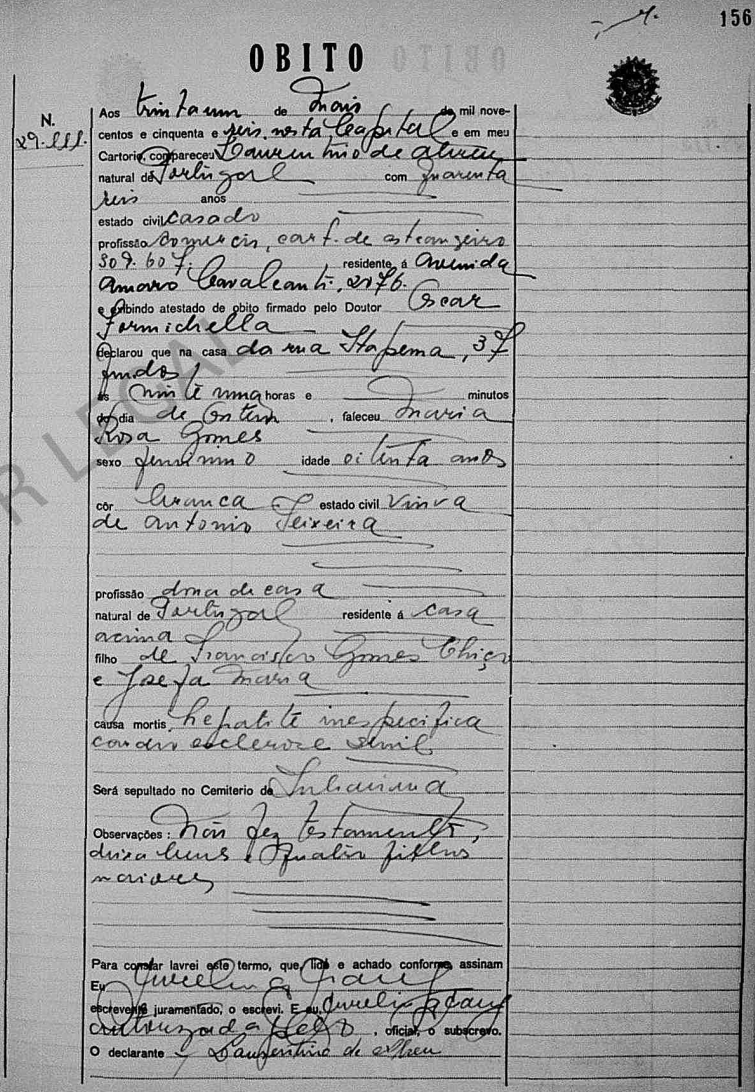 156
OBITO
N.
29.111.
Aos trinta um de Maio de mil nove-
centos e cinquenta e seis, nesta Capital e em meu
Cartorio, compareceu Laurentino de Abreu
natural de Portugal com quarenta
seis anos
estado civil casado
profissão comercio, cart. de estrangeiro
309.607. residente á Avenida
Amaro Cavalcanti, 2076.
e exibindo atestado de obito firmado pelo Doutor Oscar
Formichella
declarou que na casa da rua Itapema, 37
fundos
ás vinte uma horas e minutos
do dia de ontem, faleceu Maria
Rosa Gomes
sexo feminino idade oitenta anos
côr branca estado civil viuva
de Antonio Teixeira
profissão dona de casa
natural de Portugal residente á casa
acima
filho de Francisco Gomes
e Josefa Maria
causa mortis, hepatite inespecifica
cardio esclerose senil
Será sepultado no Cemiterio de Inhauma
Observações: Não fez testamento,
deixa bens e quatro filhos
maiores
Para constar lavrei este termo, que, lido e achado conforme, assinam
Eu
escrevente juramentado, o escrevi. E eu,
autorizada pelo, oficial, o subscrevo.
O declarante Laurentino de Abreu
R LEGAL